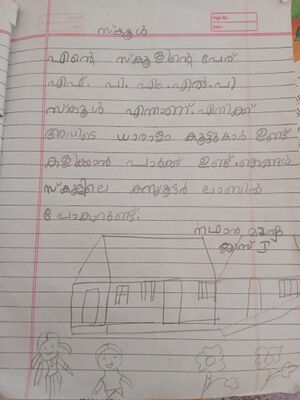 സ്കൂൾ
Page No :
Date :
എൻ്റെ സ്കൂളിൻ്റെ പേര്
എഫ്. പി. എം. എൽ. പി
സ്കൂൾ എന്നാണ്. എനിക്ക്
അവിടെ ധാരാളം കൂട്ടുകാർ ഉണ്ട്
കളിക്കാൻ പാർക്ക് ഉണ്ട്. ഞങ്ങൾ
സ്കൂളിലെ കമ്പ്യൂട്ടർ ലാബിൽ
പോകാറുണ്ട്.
ക്ലാസ് I